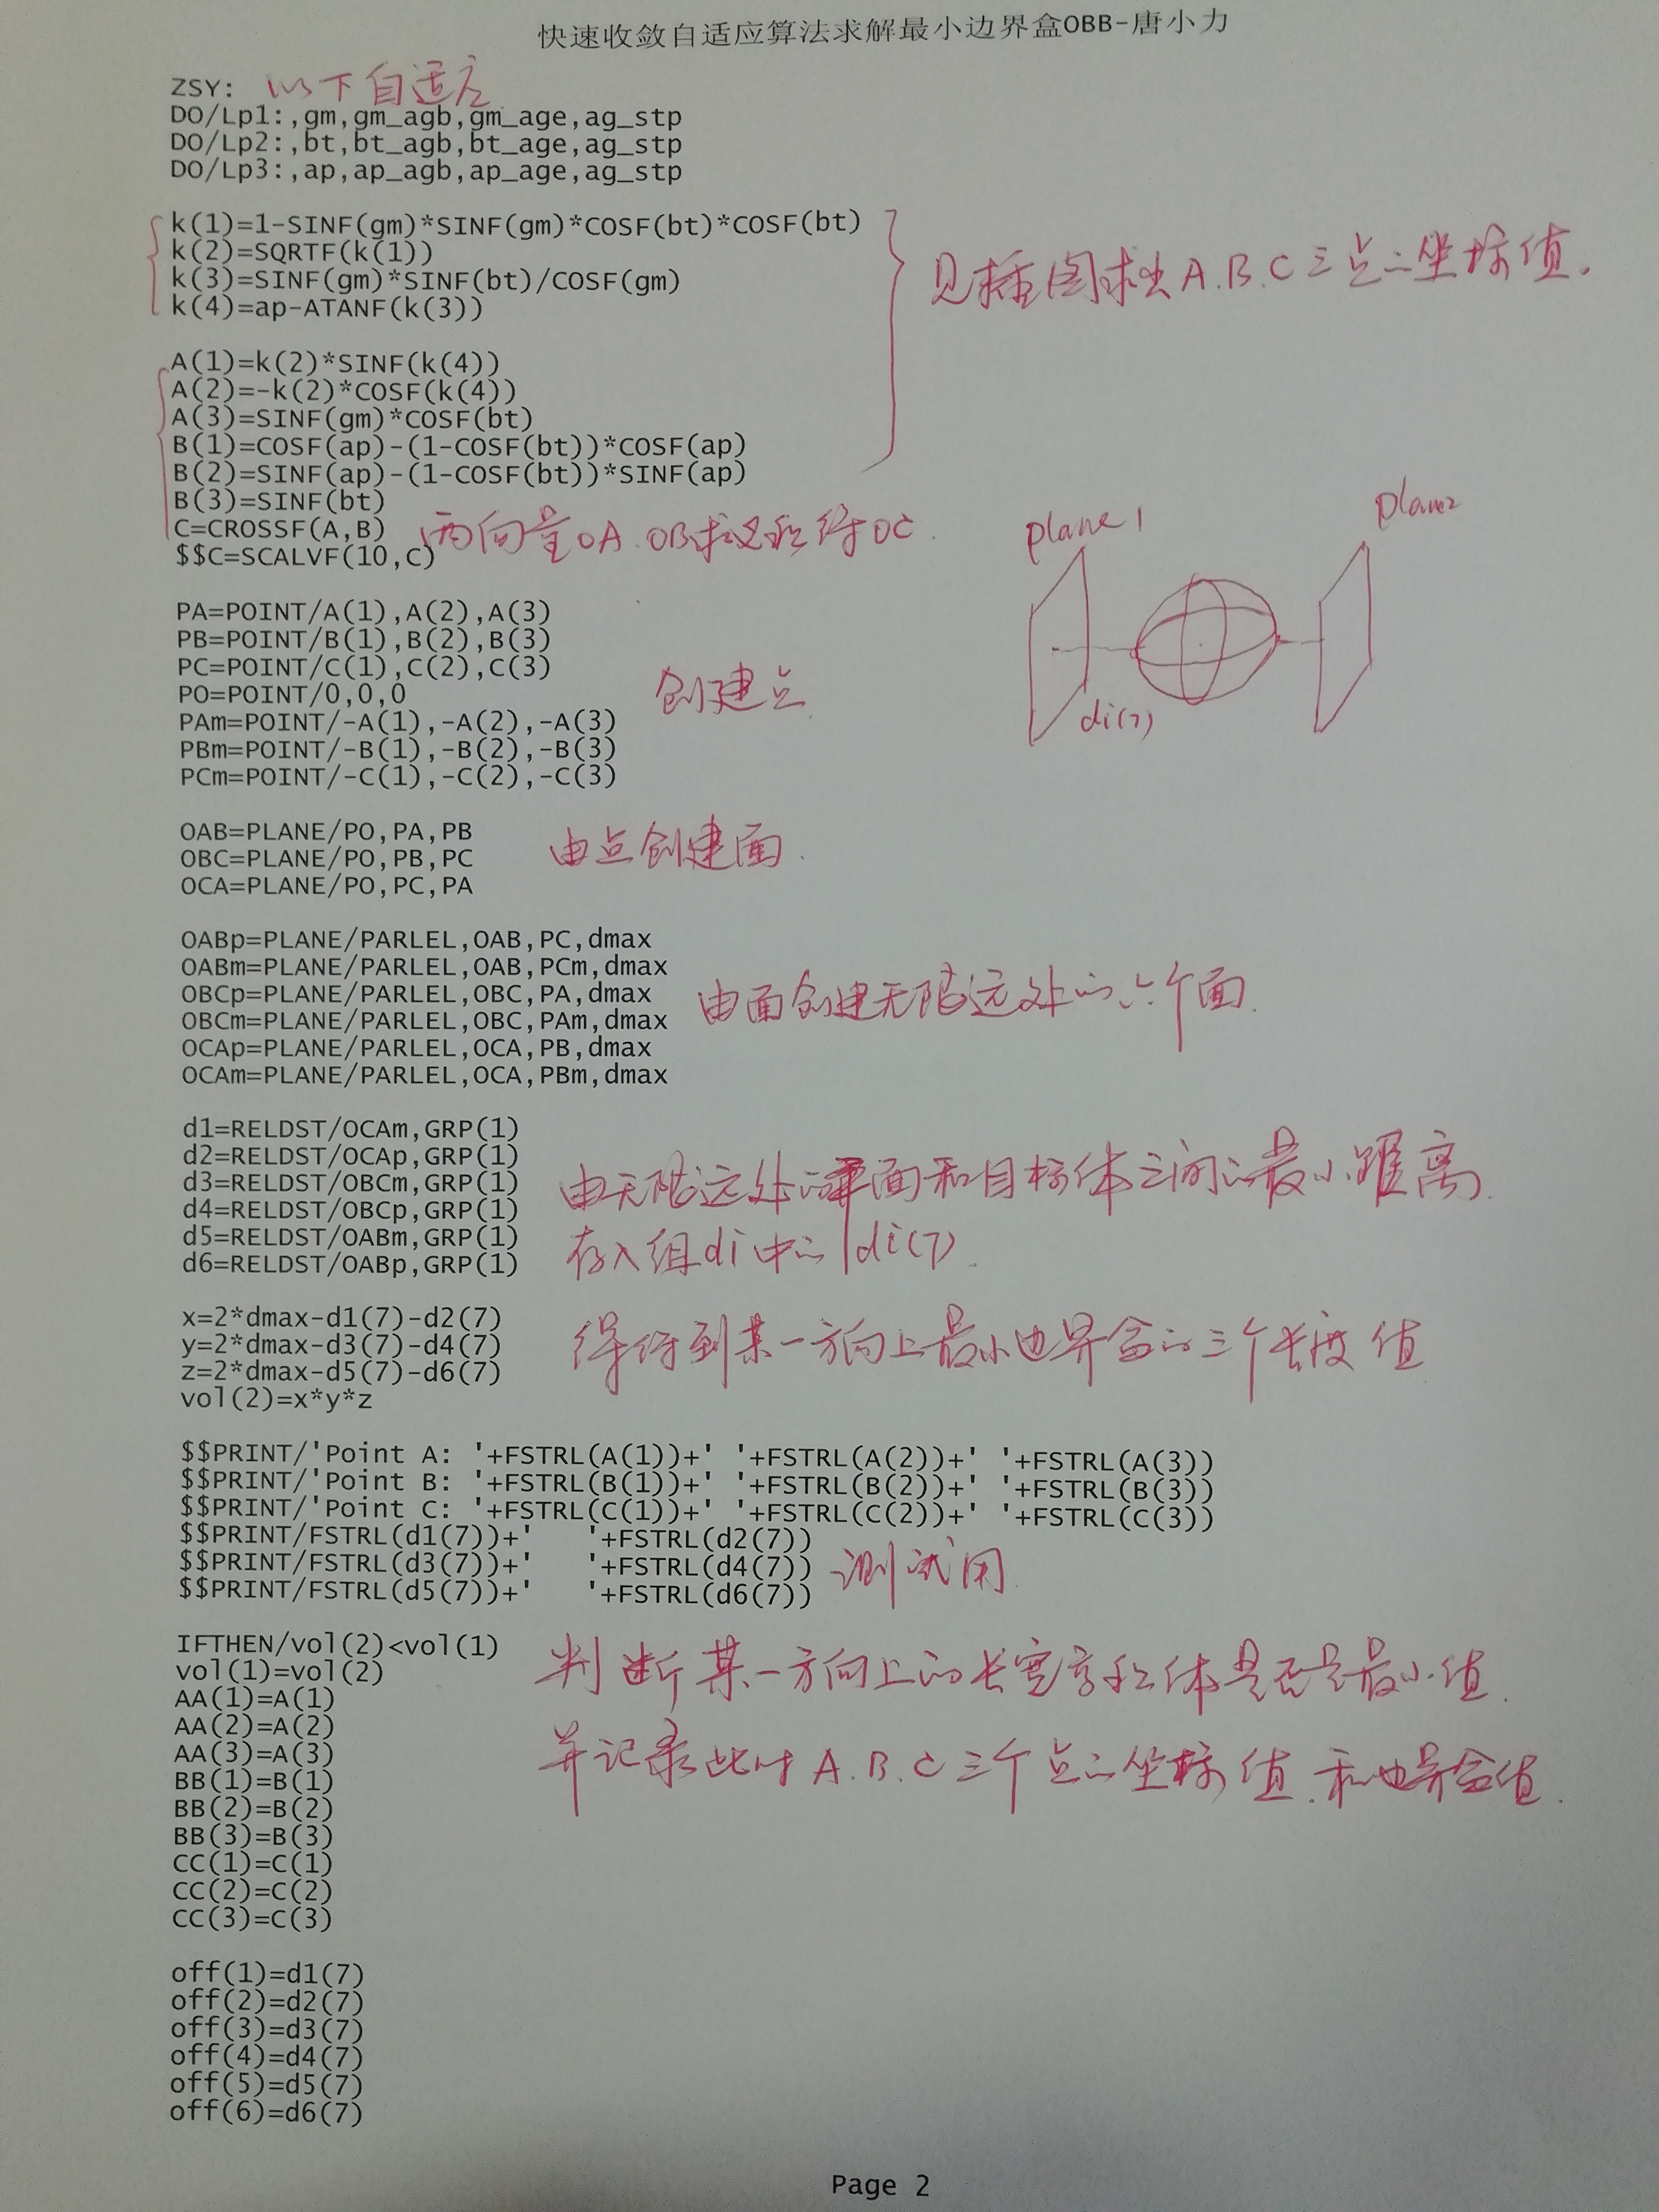 快速收敛自适应算法求解最小边界盒OBB-唐小力
ZSY: 以下自适应
DO/Lp1:,gm,gm_agb,gm_age,ag_stp
DO/Lp2:,bt,bt_agb,bt_age,ag_stp
DO/Lp3:,ap,ap_agb,ap_age,ag_stp
k(1)=1-SINF(gm)*SINF(gm)*COSF(bt)*COSF(bt)
k(2)=SQRTF(k(1))
k(3)=SINF(gm)*SINF(bt)/COSF(gm)
k(4)=ap-ATANF(k(3))
见插图求出A.B.C三点之坐标值.
A(1)=k(2)*SINF(k(4))
A(2)=-k(2)*COSF(k(4))
A(3)=SINF(gm)*COSF(bt)
B(1)=COSF(ap)-(1-COSF(bt))*COSF(ap)
B(2)=SINF(ap)-(1-COSF(bt))*SINF(ap)
B(3)=SINF(bt)
C=CROSSF(A,B) 两向量OA.OB求叉积得OC.
$$C=SCALVF(10,C)
plane1
plane2
di(7)
PA=POINT/A(1),A(2),A(3)
PB=POINT/B(1),B(2),B(3)
PC=POINT/C(1),C(2),C(3)
PO=POINT/0,0,0
PAm=POINT/-A(1),-A(2),-A(3)
PBm=POINT/-B(1),-B(2),-B(3)
PCm=POINT/-C(1),-C(2),-C(3)
创建点
OAB=PLANE/PO,PA,PB
OBC=PLANE/PO,PB,PC
OCA=PLANE/PO,PC,PA
由点创建面.
OABp=PLANE/PARLEL,OAB,PC,dmax
OABm=PLANE/PARLEL,OAB,PCm,dmax
OBCp=PLANE/PARLEL,OBC,PA,dmax
OBCm=PLANE/PARLEL,OBC,PAm,dmax
OCAp=PLANE/PARLEL,OCA,PB,dmax
OCAm=PLANE/PARLEL,OCA,PBm,dmax
由面创建无限远处的六个面.
d1=RELDST/OCAm,GRP(1)
d2=RELDST/OCAp,GRP(1)
d3=RELDST/OBCm,GRP(1)
d4=RELDST/OBCp,GRP(1)
d5=RELDST/OABm,GRP(1)
d6=RELDST/OABp,GRP(1)
由无限远处的平面和目标体之间的最小距离.
存入组di中的di(7).
x=2*dmax-d1(7)-d2(7)
y=2*dmax-d3(7)-d4(7)
z=2*dmax-d5(7)-d6(7)
vol(2)=x*y*z
得到某一方向上最小边界盒的三个长度值
$$PRINT/'Point A: '+FSTRL(A(1))+' '+FSTRL(A(2))+' '+FSTRL(A(3))
$$PRINT/'Point B: '+FSTRL(B(1))+' '+FSTRL(B(2))+' '+FSTRL(B(3))
$$PRINT/'Point C: '+FSTRL(C(1))+' '+FSTRL(C(2))+' '+FSTRL(C(3))
$$PRINT/FSTRL(d1(7))+'   '+FSTRL(d2(7))
$$PRINT/FSTRL(d3(7))+'   '+FSTRL(d4(7))
$$PRINT/FSTRL(d5(7))+'   '+FSTRL(d6(7))
测试用
IFTHEN/vol(2)<vol(1)
vol(1)=vol(2)
AA(1)=A(1)
AA(2)=A(2)
AA(3)=A(3)
BB(1)=B(1)
BB(2)=B(2)
BB(3)=B(3)
CC(1)=C(1)
CC(2)=C(2)
CC(3)=C(3)
判断某一方向上的长宽高积体是否是最小值.
并记录此时A.B.C三个点的坐标值.和边界盒值.
off(1)=d1(7)
off(2)=d2(7)
off(3)=d3(7)
off(4)=d4(7)
off(5)=d5(7)
off(6)=d6(7)
Page 2